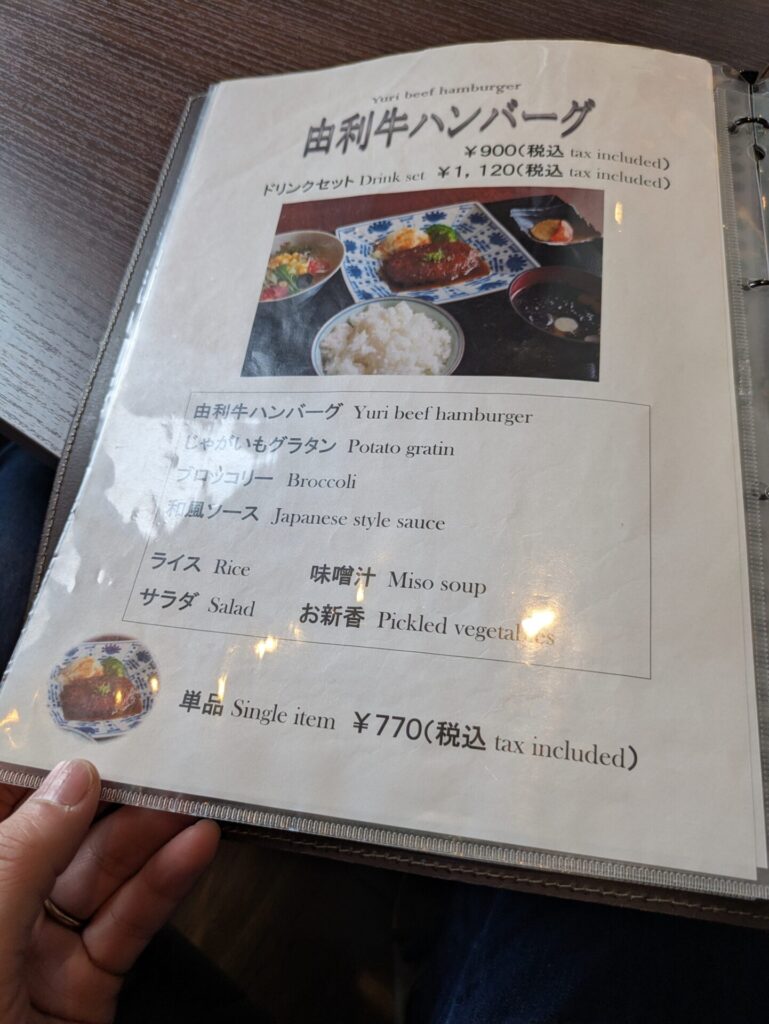 Yuri beef hamburger
由利牛ハンバーグ
¥900(税込 tax included)
ドリンクセット Drink set ¥1,120(税込 tax included)
由利牛ハンバーグ Yuri beef hamburger
じゃがいもグラタン Potato gratin
ブロッコリー Broccoli
和風ソース Japanese style sauce
ライス Rice 味噌汁 Miso soup
サラダ Salad お新香 Pickled vegetables
単品 Single item ¥770(税込 tax included)